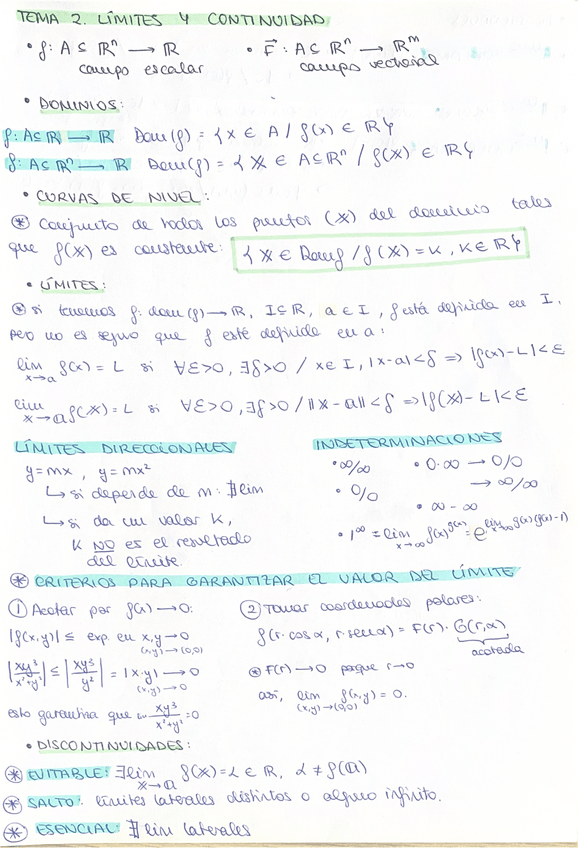 TEMA 2. LÍMITES Y CONTINUIDAD
• f: A ⊆ ℝⁿ → ℝ • F⃗ : A ⊆ ℝⁿ → ℝᵐ
campo escalar campo vectorial
• DOMINIOS:
f: A⊆ℝ → ℝ Dom(f) = {x ∈ A / f(x) ∈ ℝ}
f: A⊆ℝⁿ → ℝ Dom(f) = {𝕏 ∈ A⊆ℝⁿ / f(𝕏) ∈ ℝ}
• CURVAS DE NIVEL:
⊛ Conjunto de todos los puntos (𝕏) del dominio tales
que f(𝕏) es constante: {𝕏 ∈ Dom f / f(𝕏) = K, K ∈ ℝ}
• LÍMITES:
⊛ si tenemos f: dom(f) → ℝ, I⊆ℝ, a ∈ I, f está definida en I.
pero no es seguro que f esté definida en a:
lim x→a f(x) = L si ∀ε>0, ∃δ>0 / x∈I, |x-a|<δ ⇒ |f(x)-L|<ε
lim 𝕏→𝕒 f(𝕏) = L si ∀ε>0, ∃δ>0 / ||𝕏-𝕒||<δ ⇒ |f(𝕏)-L|<ε
LÍMITES DIRECCIONALES
y=mx , y=mx²
↳ si depende de m: ∄lim
↳ si da un valor K,
K NO es el resultado
del límite
INDETERMINACIONES
• ∞/∞ • 0·∞ → 0/0
• 0/0 → ∞/∞
• ∞-∞
• 1^∞ = lim x→∞ f(x)^g(x) = e^lim x→∞ g(x)(f(x)-1)
⊛ CRITERIOS PARA GARANTIZAR EL VALOR DEL LÍMITE
① Acotar por f(x) → 0:
|f(x,y)| ≤ exp. en x,y → 0
(x,y)→(0,0)
|xy³/x²+y²| ≤ |xy³/y²| = |x·y| → 0
(x,y)→0
esto garantiza que lim xy³/x²+y² = 0
② Tomar coordenadas polares:
f(r·cos α, r·sen α) = F(r)·G(r,α)
acotada
⊛ F(r) → 0 porque r→0
así, lim (x,y)→(0,0) f(x,y) = 0.
• DISCONTINUIDADES:
⊛ EVITABLE: ∃lim 𝕏→𝕒 f(𝕏) = α ∈ ℝ, α ≠ f(𝕒)
⊛ SALTO: límites laterales distintos o alguno infinito.
⊛ ESENCIAL: ∄ lim laterales